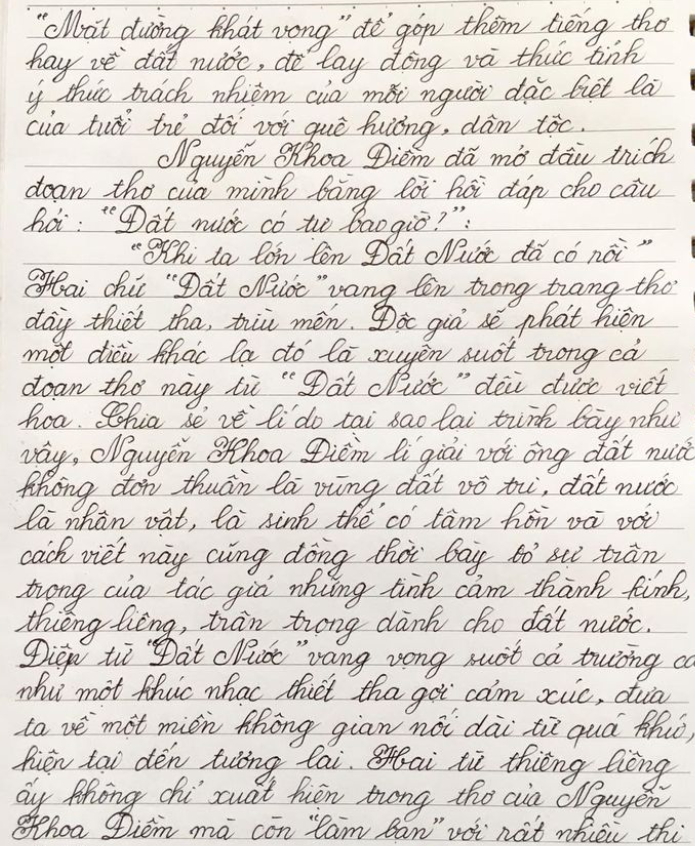 "Mặt đường khát vọng" để góp thêm tiếng thơ
hay về đất nước, để lay động và thức tỉnh
ý thức trách nhiệm của mỗi người đặc biệt là
của tuổi trẻ đối với quê hương, dân tộc.
Nguyễn Khoa Điềm đã mở đầu trích
đoạn thơ của mình bằng lời hồi đáp cho câu
hỏi : "Đất nước có từ bao giờ?":
"Khi ta lớn lên Đất Nước đã có rồi"
Hai chữ "Đất Nước" vang lên trong trang thơ
đầy thiết tha, trìu mến. Độc giả sẽ phát hiện
một điều khác lạ đó là xuyên suốt trong cả
đoạn thơ này từ "Đất Nước" đều được viết
hoa. Chia sẻ về lí do tại sao lại trình bày như
vậy, Nguyễn Khoa Điềm lí giải với ông đất nước
không đơn thuần là vùng đất vô tri, đất nước
là nhân vật, là sinh thể có tâm hồn và với
cách viết này cũng đồng thời bày tỏ sự trân
trọng của tác giả những tình cảm thành kính,
thiêng liêng, trân trọng dành cho đất nước.
Điệp từ "Đất Nước" vang vọng suốt cả trường ca
như một khúc nhạc thiết tha gợi cảm xúc, đưa
ta về một miền không gian nối dài từ quá khứ,
hiện tại đến tương lai. Hai từ thiêng liêng
ấy không chỉ xuất hiện trong thơ của Nguyễn
Khoa Điềm mà còn "làm bạn" với rất nhiều thi